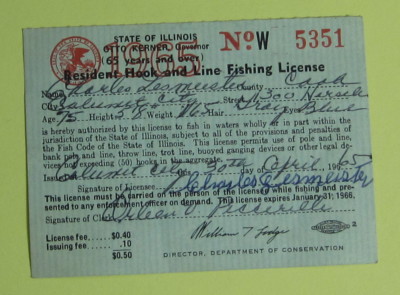 STATE OF ILLINOIS
OTTO KERNER, Governor
(65 years and over)
1965
No W 5351
Resident Hook and Line Fishing License
Name Charles Desmeuster County Cook
City Calumet City Street
Age 75 Height 5'8 Weight 165 Hair Gray Eyes Blue
is hereby authorized by this license to fish in waters wholly or in part within the
jurisdiction of the State of Illinois, subject to all of the provisions and penalties of
the Fish Code of the State of Illinois. This license permits use of pole and line,
bank pole and line, throw line, trot line, buoyed ganging devices or other legal de-
vices not exceeding (50) hooks in the aggregate.
Issued Calumet City 30th day of April 1965
Signature of Licensee Charles Desmeuster
This license must be carried on the person of the licensee while fishing and pre-
sented to any enforcement officer on demand. This license expires January 31, 1966.
Signature of Clerk
License fee — $0.40
Issuing fee — .10
$0.50
William T Lodge
DIRECTOR, DEPARTMENT OF CONSERVATION
2